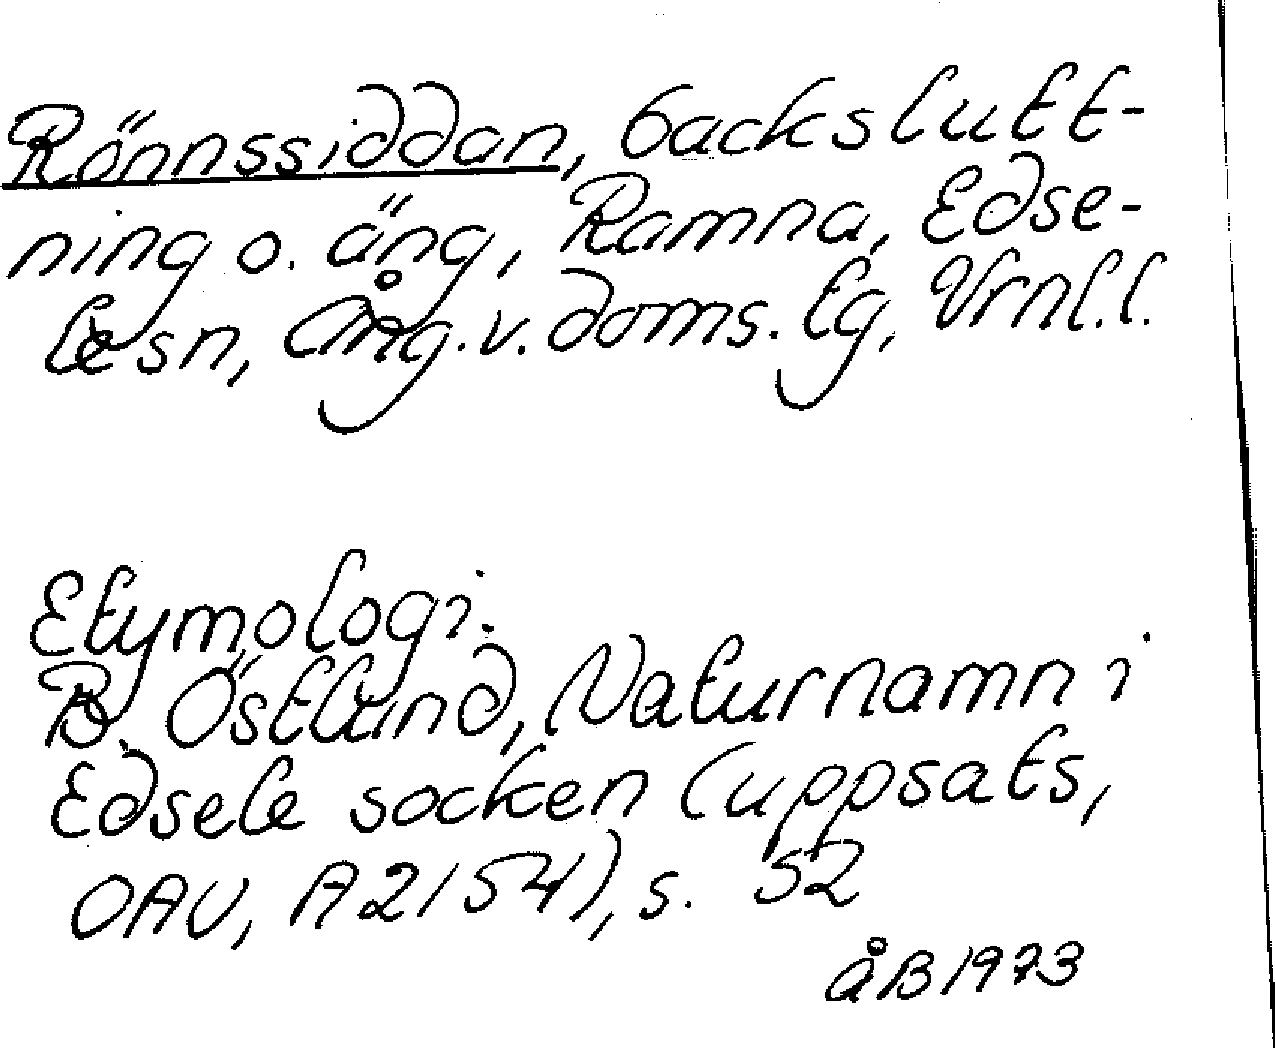 Rönnssiddan, backslutt-
ning o. äng, Ramna, Edse-
le sn, Ång.v. doms. tg, Vrnl.l.
Etymologi.
B. Östlund, Naturnamn i
Edsele socken (uppsats,
OAU, A2154), s. 52
ÅB 1973